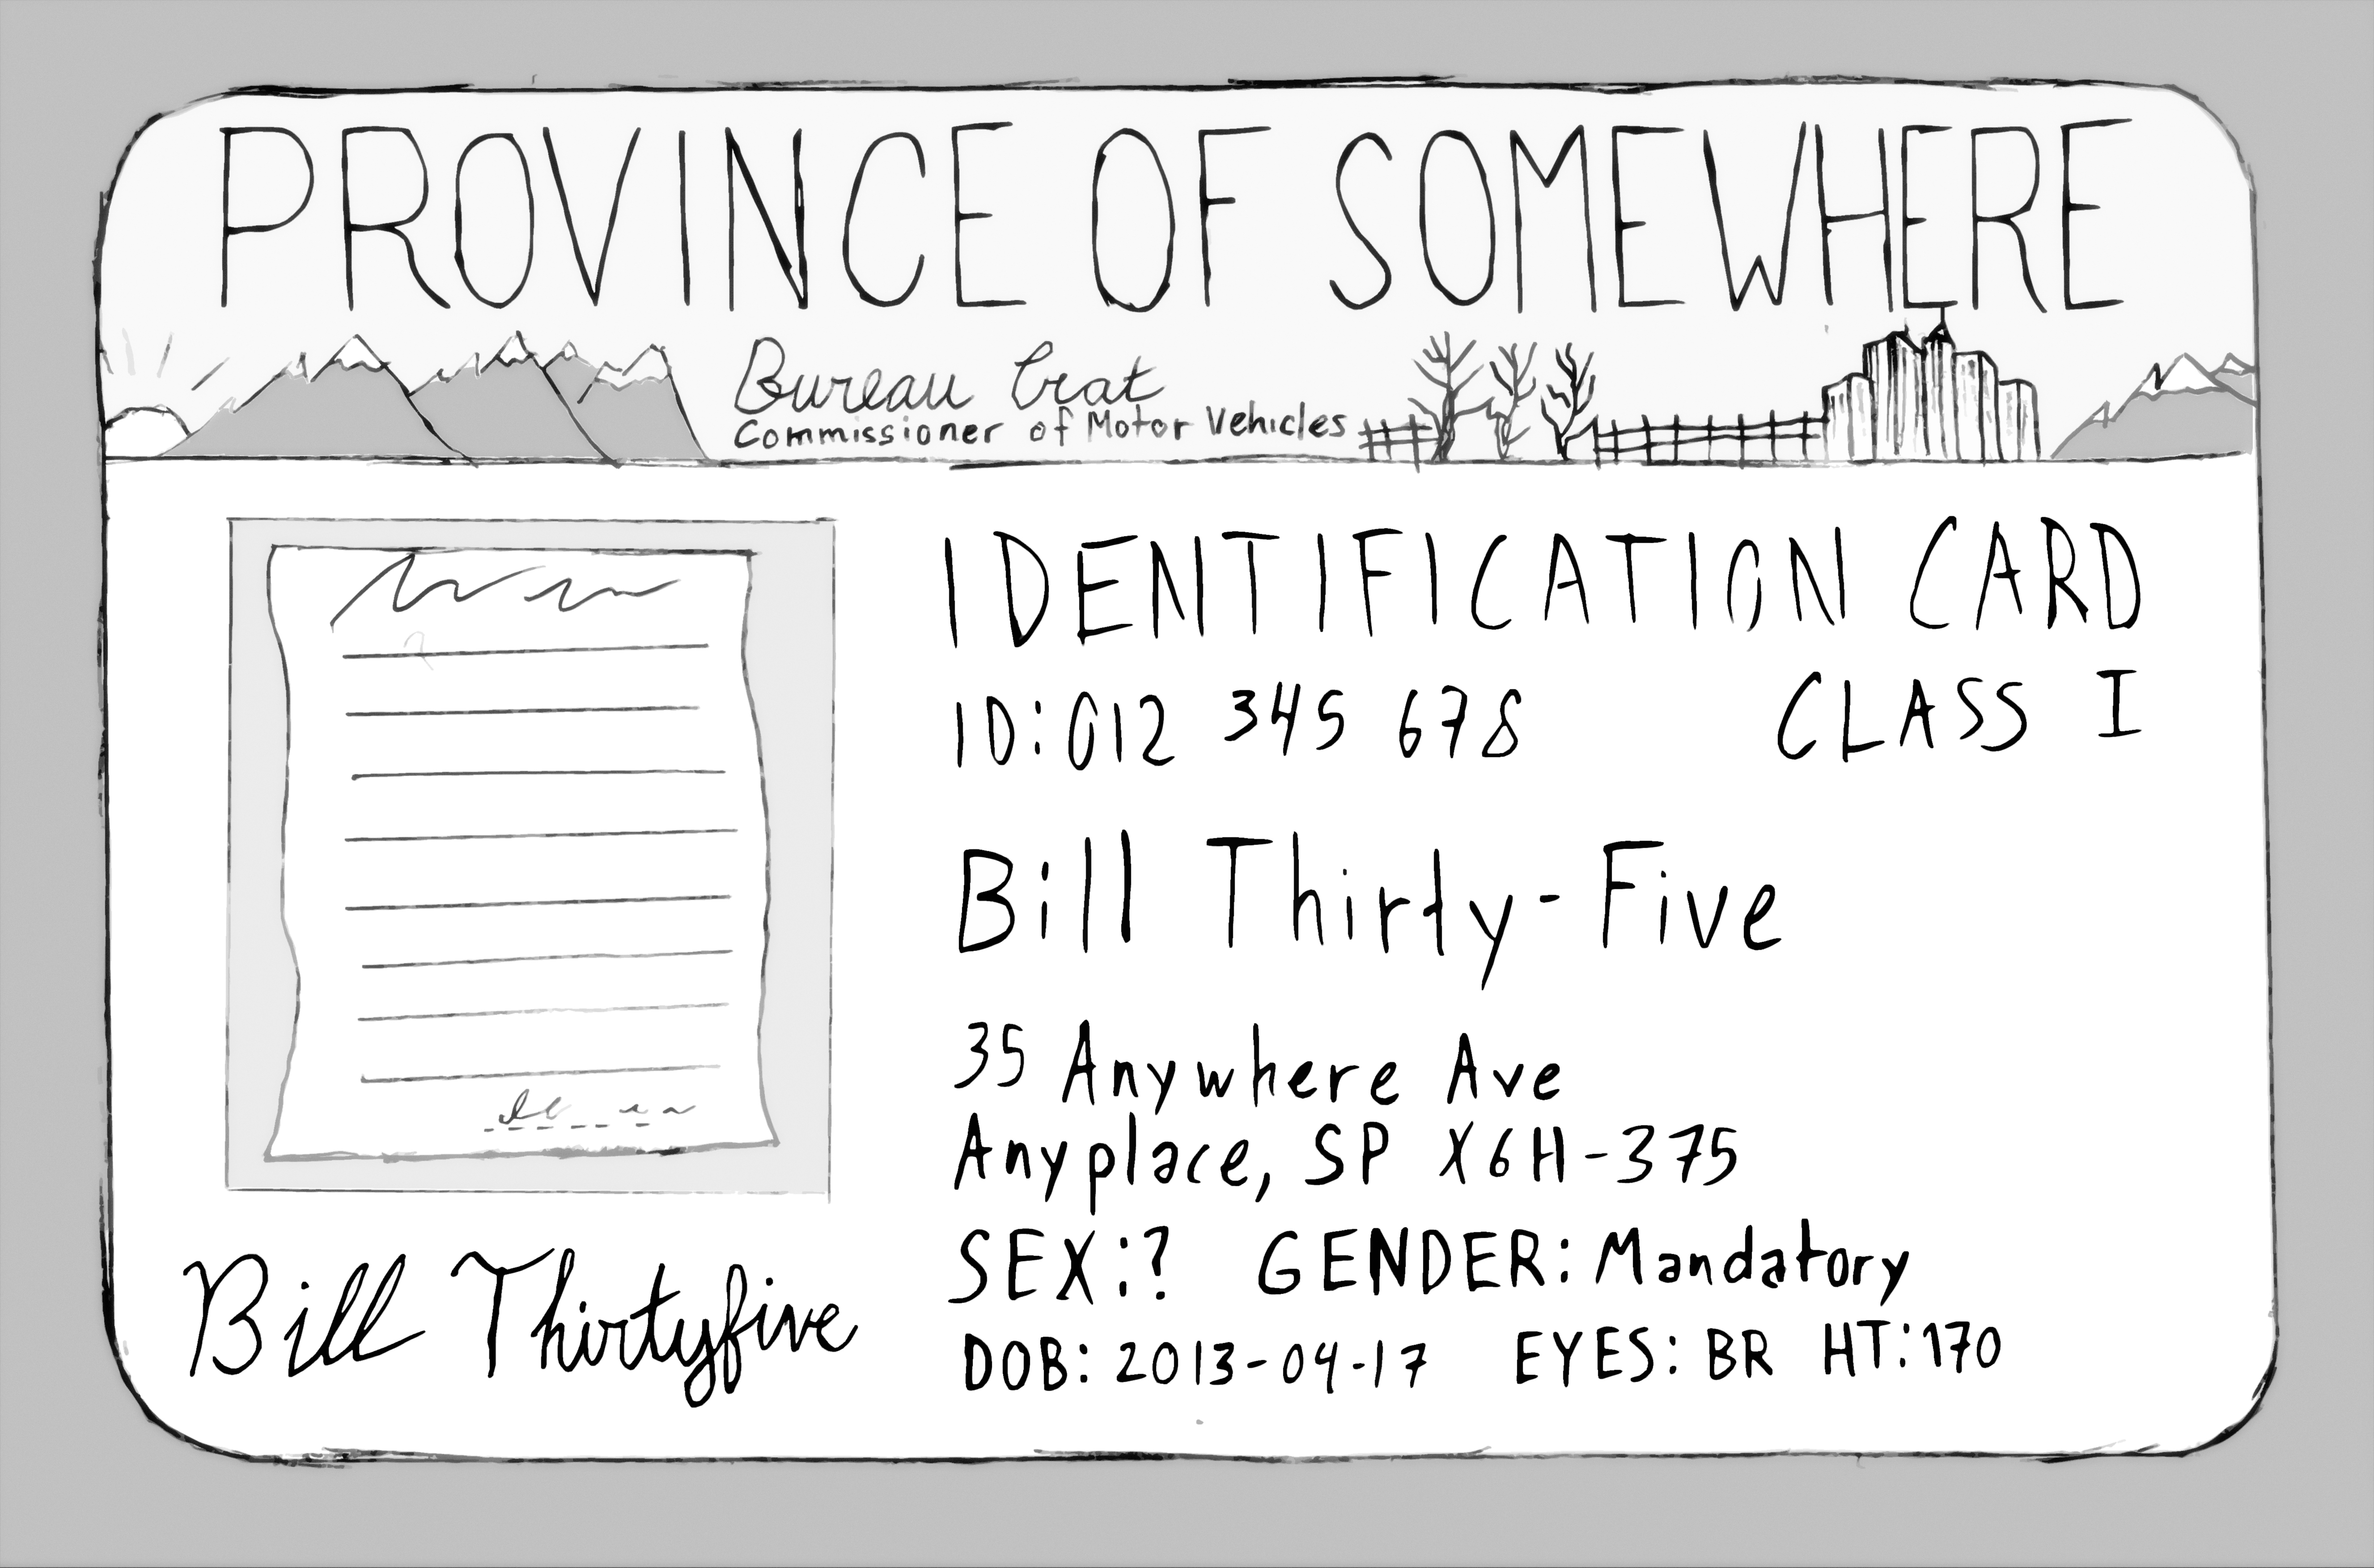 PROVINCE OF SOMEWHERE
Bureau Crat
Commissioner of Motor Vehicles
IDENTIFICATION CARD
ID:012 345 678 CLASS I
Bill Thirty-Five
35 Anywhere Ave
Anyplace, SP X6H-375
SEX:? GENDER: Mandatory
DOB: 2013-04-17 EYES: BR HT:170
Bill Thirtyfive